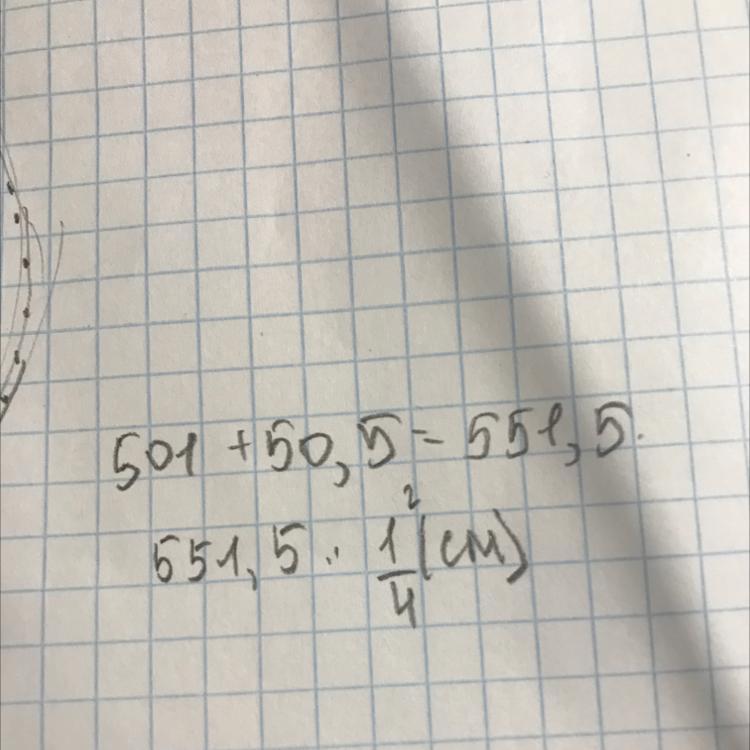 501 + 50,5 = 551,5.
551,5 · 1²/4 (см)